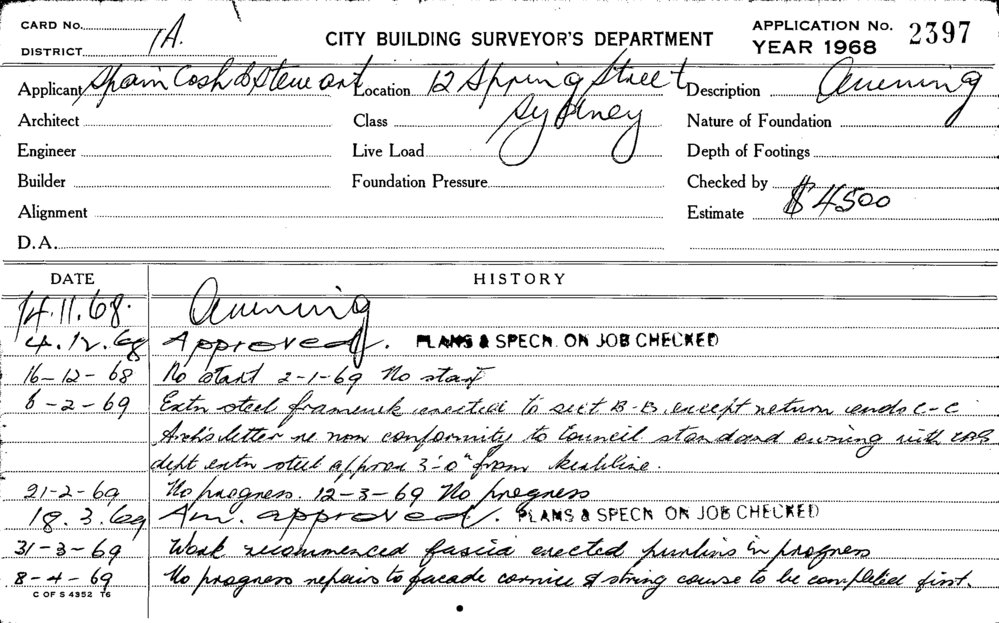 CARD No. 1A. CITY BUILDING SURVEYOR'S DEPARTMENT APPLICATION No. 2397
DISTRICT YEAR 1968
Applicant Spain Cosh & Stewart Location 12 Spring Street Description Awning
Architect Class Sydney Nature of Foundation
Engineer Live Load Depth of Footings
Builder Foundation Pressure Checked by
Alignment Estimate $4500
D.A.
DATE HISTORY
14.11.68. Awning
4.12.68 Approved. PLANS & SPECN. ON JOB CHECKED
16-12-68 No start 2-1-69 No start
6-2-69 Extn steel framewk erected to sect B-B, except return ends C-C
Arch's letter re non conformity to Council standard awning with
dept extn steel approx 3'-0" from kerbline.
21-2-69 No progress. 12-3-69 No progress
18.3.69 Am. approved. PLANS & SPECN ON JOB CHECKED
31-3-69 Work recommenced fascia erected purlins in progress
8-4-69 No progress repairs to facade cornice & string course to be completed first.
C OF S 4352 T6